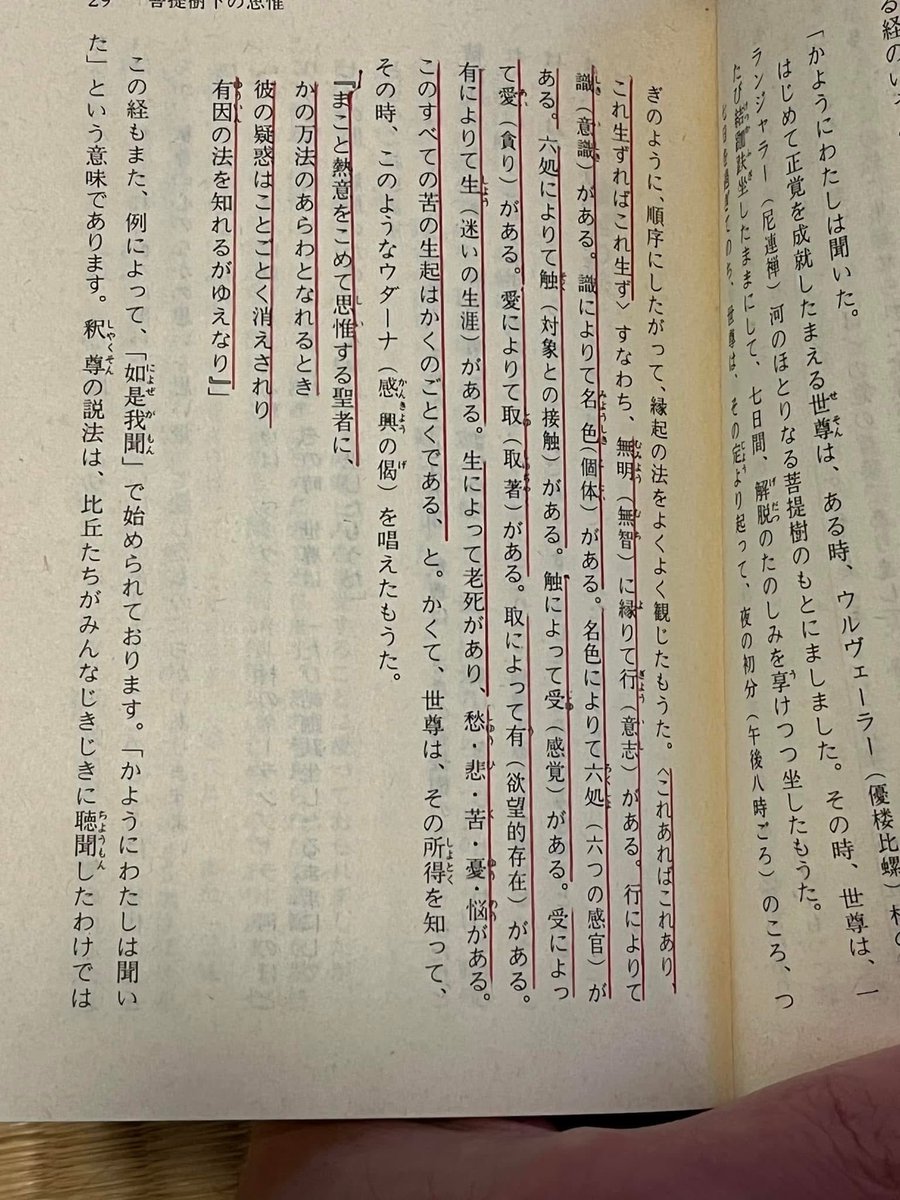 る経のい
「かようにわたしは聞いた。
はじめて正覚を成就したまえる世尊は、ある時、ウルヴェーラー（優楼比螺）村の
ランジャラー（尼連禅）河のほとりなる菩提樹のもとにましました。その時、世尊は、一
たび結跏趺坐したままにして、七日間、解脱のたのしみを享けつつ坐したもうた。
七日を過ぎてのち、世尊は、その定より起って、夜の初分（午後八時ごろ）のころ、つ
29　菩提樹下の思惟
ぎのように、順序にしたがって、縁起の法をよくよく観じたもうた。〈これあればこれあり、
これ生ずればこれ生ず〉すなわち、無明（無智）に縁りて行（意志）がある。行によりて
識（意識）がある。識によりて名色（個体）がある。名色によりて六処（六つの感官）が
ある。六処によりて触（対象との接触）がある。触によって受（感覚）がある。受によっ
て愛（貪り）がある。愛によりて取（取著）がある。取によって有（欲望的存在）がある。
有によりて生（迷いの生涯）がある。生によって老死があり、愁・悲・苦・憂・悩がある。
このすべての苦の生起はかくのごとくである、と。かくて、世尊は、その所得を知って、
その時、このようなウダーナ（感興の偈）を唱えたもうた。
『まこと熱意をこめて思惟する聖者に
かの万法のあらわとなれるとき
彼の疑惑はことごとく消えされり
有因の法を知れるがゆえなり』」
この経もまた、例によって、「如是我聞」で始められております。「かようにわたしは聞い
た」という意味であります。釈尊の説法は、比丘たちがみんなじきじきに聴聞したわけでは